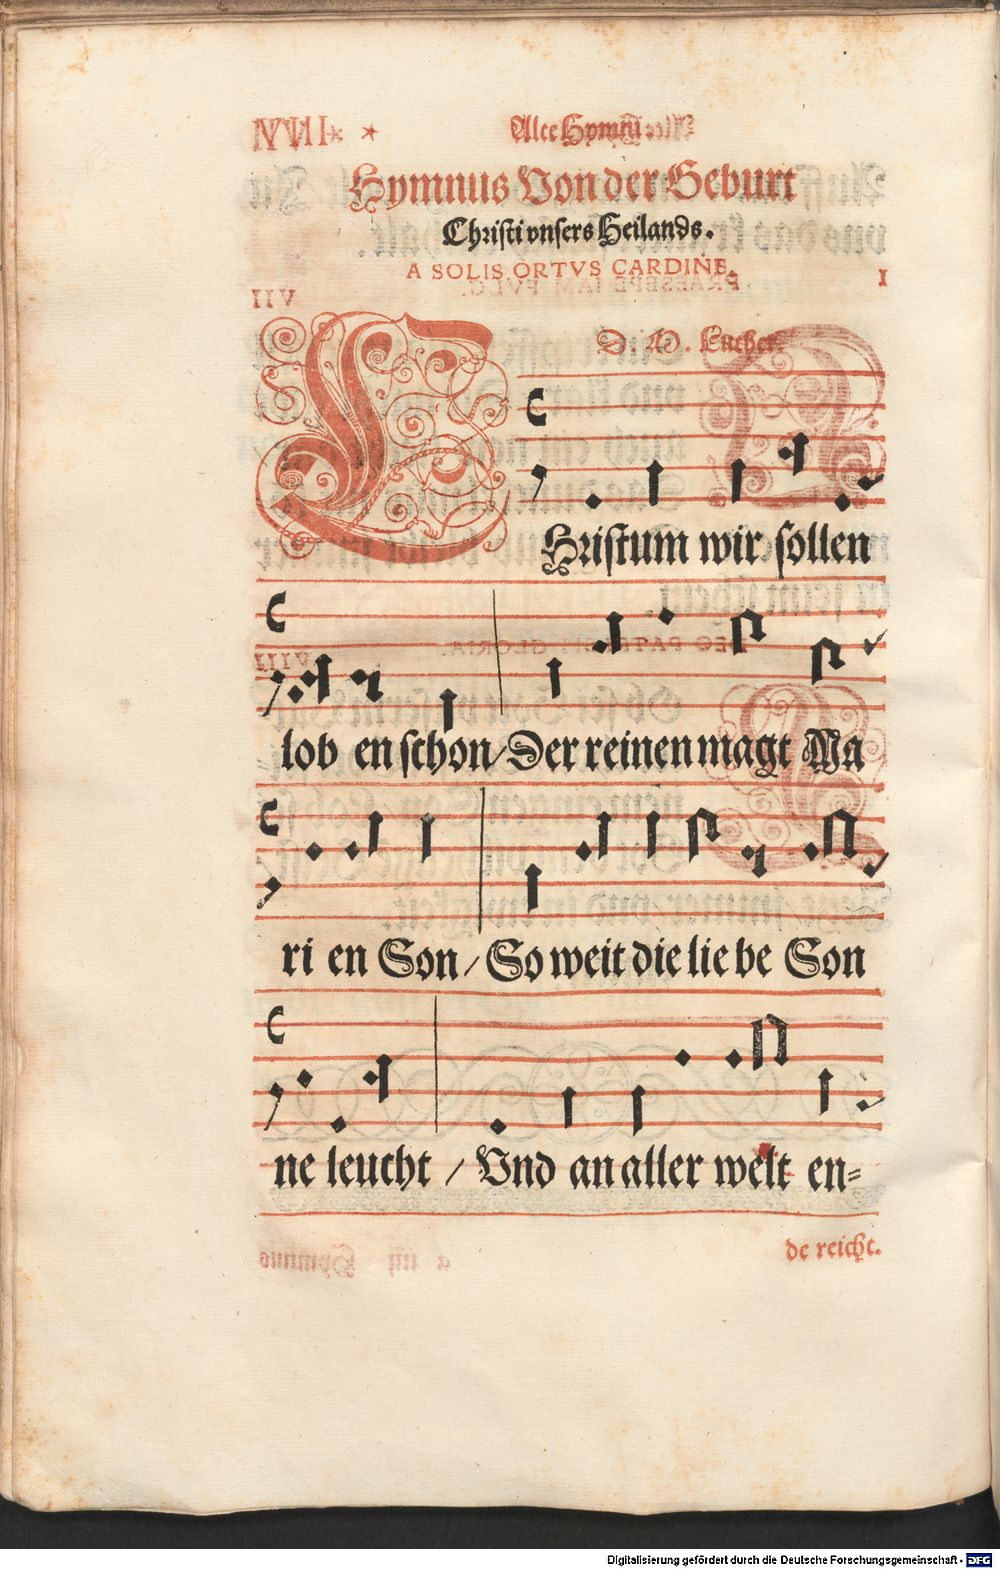 Alte Hymni
Hymnus Von der Geburt
Christi vnsers Heilands.
A SOLIS ORTVS CARDINE.
D. M. Luther
CHristum wir sollen
lob en schon/ Der reinen magt Ma
ri en Son/ So weit die lie be Son
ne leucht / Vnd an aller welt en-
de reicht.
Digitalisierung gefördert durch die Deutsche Forschungsgemeinschaft - DFG